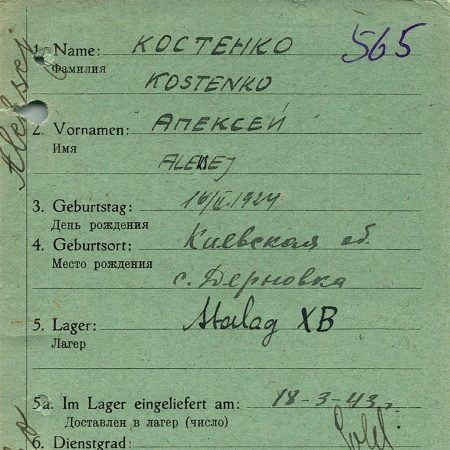 565
1. Name: КОСТЕНКО
Фамилия
KOSTENKO
2. Vornamen: АЛЕКСЕЙ
Имя
ALEXEJ
3. Geburtstag: 16/II.1924
День рождения
4. Geburtsort: Киевская об.
Место рождения
с. Дерновка
5. Lager: Stalag XB
Лагер
5a. Im Lager eingeliefert am: 18-3-43г.
Доставлен в лагер (число)
6. Dienstgrad: Sold.
Aleksej